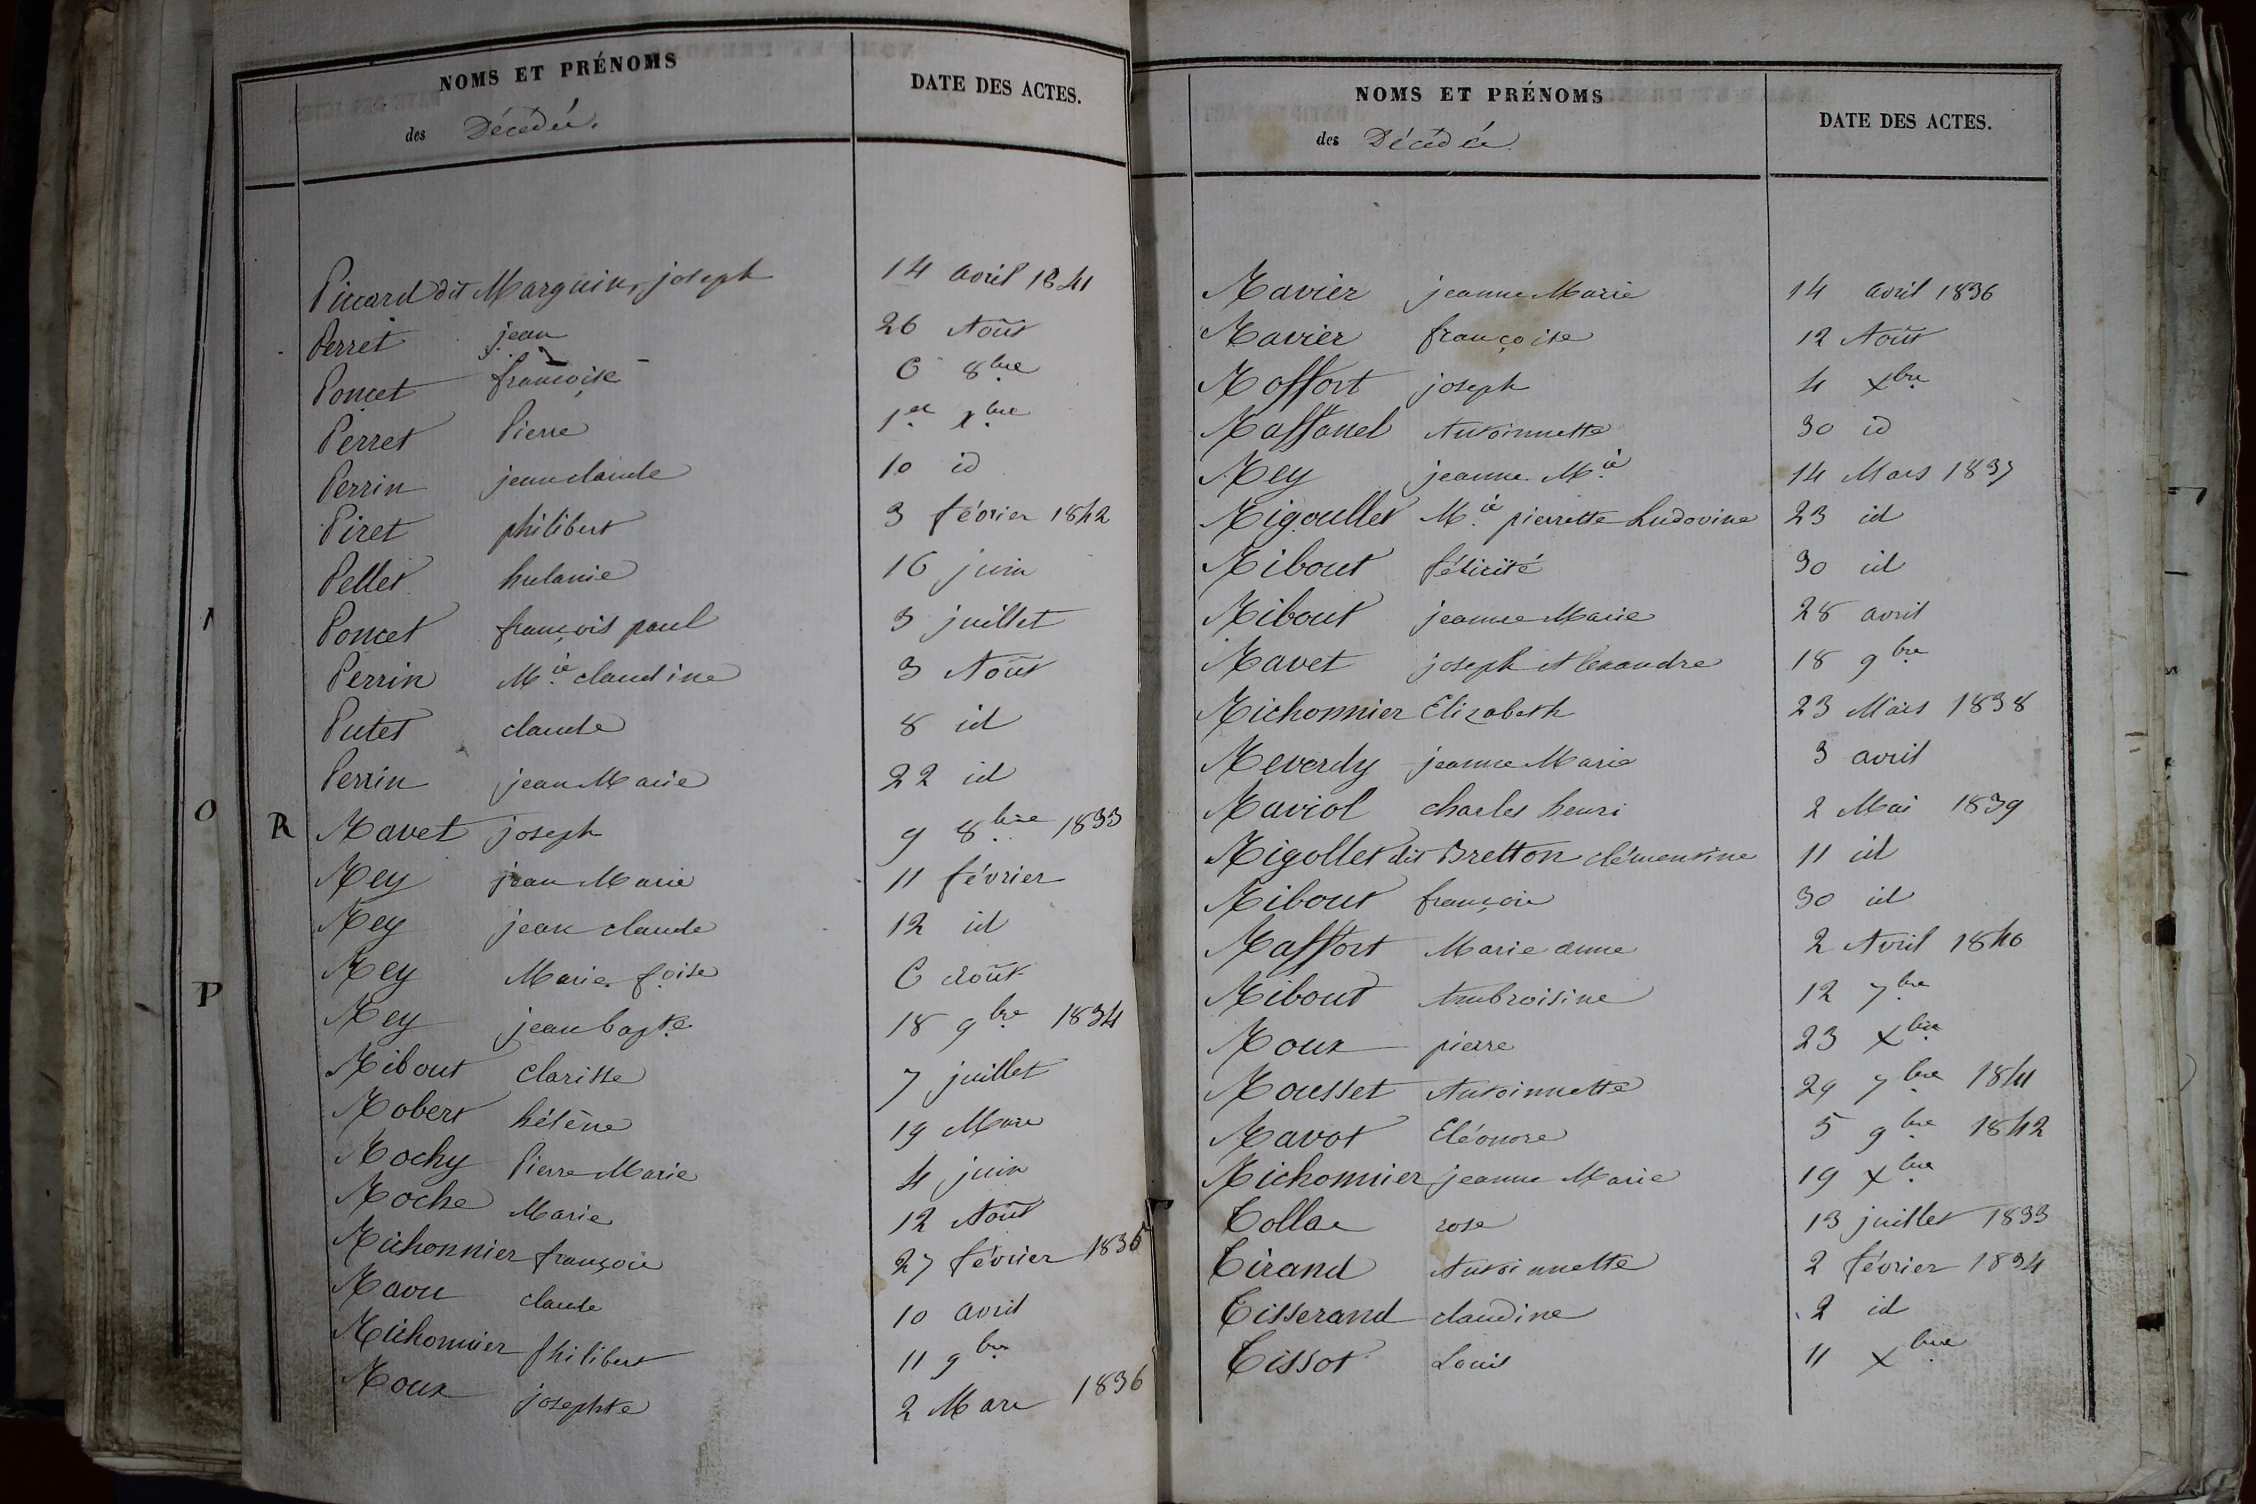 NOMS ET PRÉNOMS
des Décédés.
DATE DES ACTES.
Piccard dit Marguin, joseph 14 avril 1841
Perret jean 26 Août
Poncet françoise 6 8bre
Perret Pierre 1er xbre
Perrin jean claude 10 id
Piret philibert 3 février 1842
Pellet hulanie 16 juin
Poncet françois paul 3 juillet
Perrin Mie claudine 3 Août
Putet claude 8 id
Perrin jean Marie 22 id
R Ravet joseph 9 8bre 1833
Rey jean Marie 11 février
Rey jean claude 12 id
Rey Marie foise 6 août
Rey jean bapte 18 9bre 1834
Ribout Clarisse 7 juillet
Robert hélène 19 Mars
Rochy Pierre Marie 4 juin
Roche Marie 12 Août
Richonnier françois 27 février 1835
Ravu claude 10 avril
Richonnier philibert 11 9bre
Roux josephte 2 Mars 1836
O
P
NOMS ET PRÉNOMS
des Décédés
DATE DES ACTES.
Ravier jeanne Marie 14 avril 1836
Ravier françoise 12 Août
Roffort joseph 4 xbre
Raffanel Antoinnette 30 id
Rey jeanne Mie 14 Mars 1837
Rigoullet Mie pierrette Ludovine 23 id
Ribout félicité 30 id
Ribout jeanne Marie 28 avril
Ravet joseph Alexandre 18 9bre
Richonnier Elizabeth 23 Mars 1838
Reverdy jeanne Marie 3 avril
Raviol charles henri 2 Mai 1839
Rigollet dit Bretton clémentine 11 id
Ribout françois 30 id
Raffort Marie anne 2 Avril 1840
Ribout Ambroisine 12 7bre
Roux pierre 23 xbre
Rousset Antoinnette 29 7bre 1841
Ravot Eléonore 5 9bre 1842
Richonnier jeanne Marie 19 xbre
T Collae rose 13 juillet 1833
Tirand Antoinnette 2 février 1834
Tisserand claudine 2 id
Tissot Louis 11 xbre